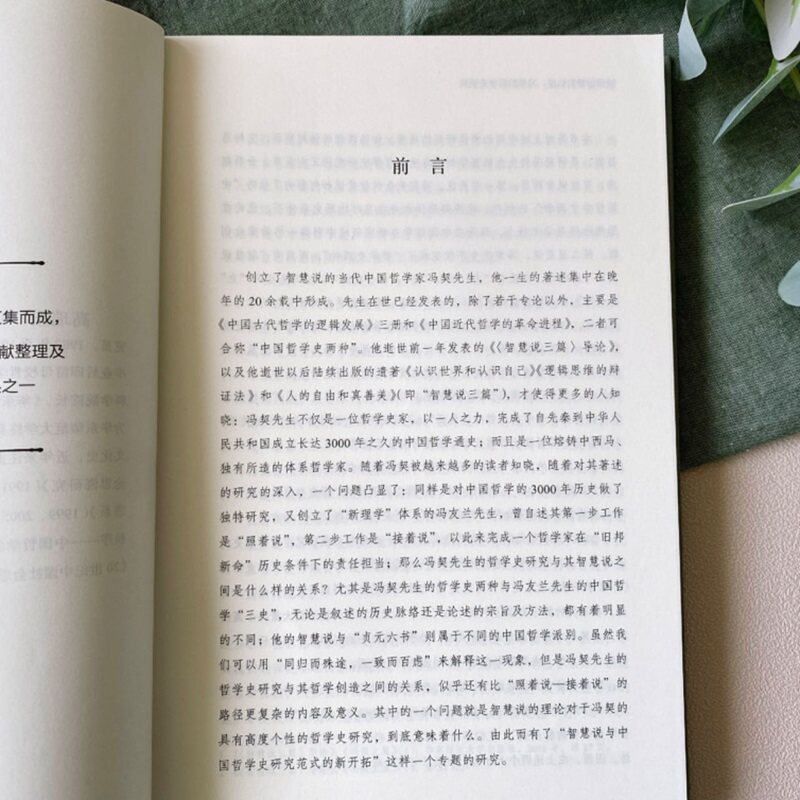 集而成，
献整理及
之一
前 言
创立了智慧说的当代中国哲学家冯契先生，他一生的著述集中在晚
年的 20 余载中形成。先生在世已经发表的，除了若干专论以外，主要是
《中国古代哲学的逻辑发展》三册和《中国近代哲学的革命进程》，二者可
合称“中国哲学史两种”。他逝世前一年发表的《〈智慧说三篇〉导论》，
以及他逝世以后陆续出版的遗著《认识世界和认识自己》《逻辑思维的辩
证法》和《人的自由和真善美》（即“智慧说三篇”），才使得更多的人知
晓：冯契先生不仅是一位哲学史家，以一人之力，完成了自先秦到中华人
民共和国成立长达 3000 年之久的中国哲学通史；而且是一位熔铸中西马、
独有所造的体系哲学家。随着冯契被越来越多的读者知晓，随着对其著述
的研究的深入，一个问题凸显了：同样是对中国哲学的 3000 年历史做了
独特研究，又创立了“新理学”体系的冯友兰先生，曾自述其第一步工作
是“照着说”，第二步工作是“接着说”，以此来完成一个哲学家在“旧邦
新命”历史条件下的责任担当；那么冯契先生的哲学史研究与其智慧说之
间是什么样的关系？尤其是冯契先生的哲学史两种与冯友兰先生的中国哲
学“三史”，无论是叙述的历史脉络还是论述的宗旨及方法，都有着明显
的不同；他的智慧说与“贞元六书”则属于不同的中国哲学派别。虽然我
们可以用“同归而殊途，一致而百虑”来解释这一现象，但是冯契先生的
哲学史研究与其哲学创造之间的关系，似乎还有比“照着说—接着说”的
路径更复杂的内容及意义。其中的一个问题就是智慧说的理论对于冯契的
具有高度个性的哲学史研究，到底意味着什么。由此而有了“智慧说与中
国哲学史研究范式的新开拓”这样一个专题的研究。